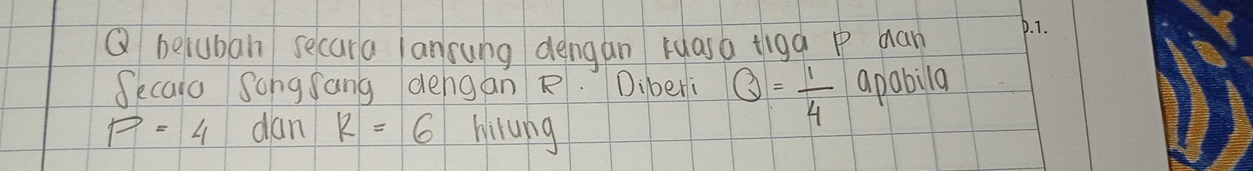 Q berubah secara lansung dengan kuasa tiga P dan
Secara Songsang dengan R. Diberi Q = 1/4 apabila
P = 4 dan R = 6 hitung